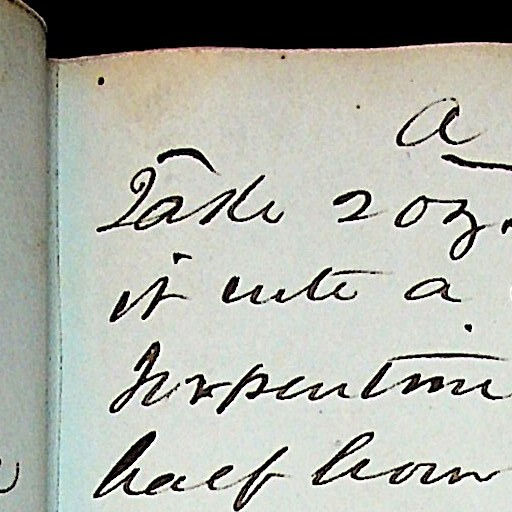 A
Take 2 oz.
it into a
Turpentine
half hour